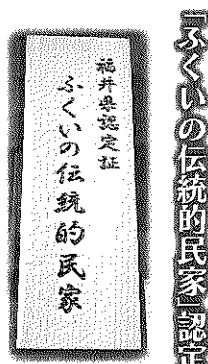 「ふくいの伝統的民家」認定
福井県認定証
ふくいの伝統的民家